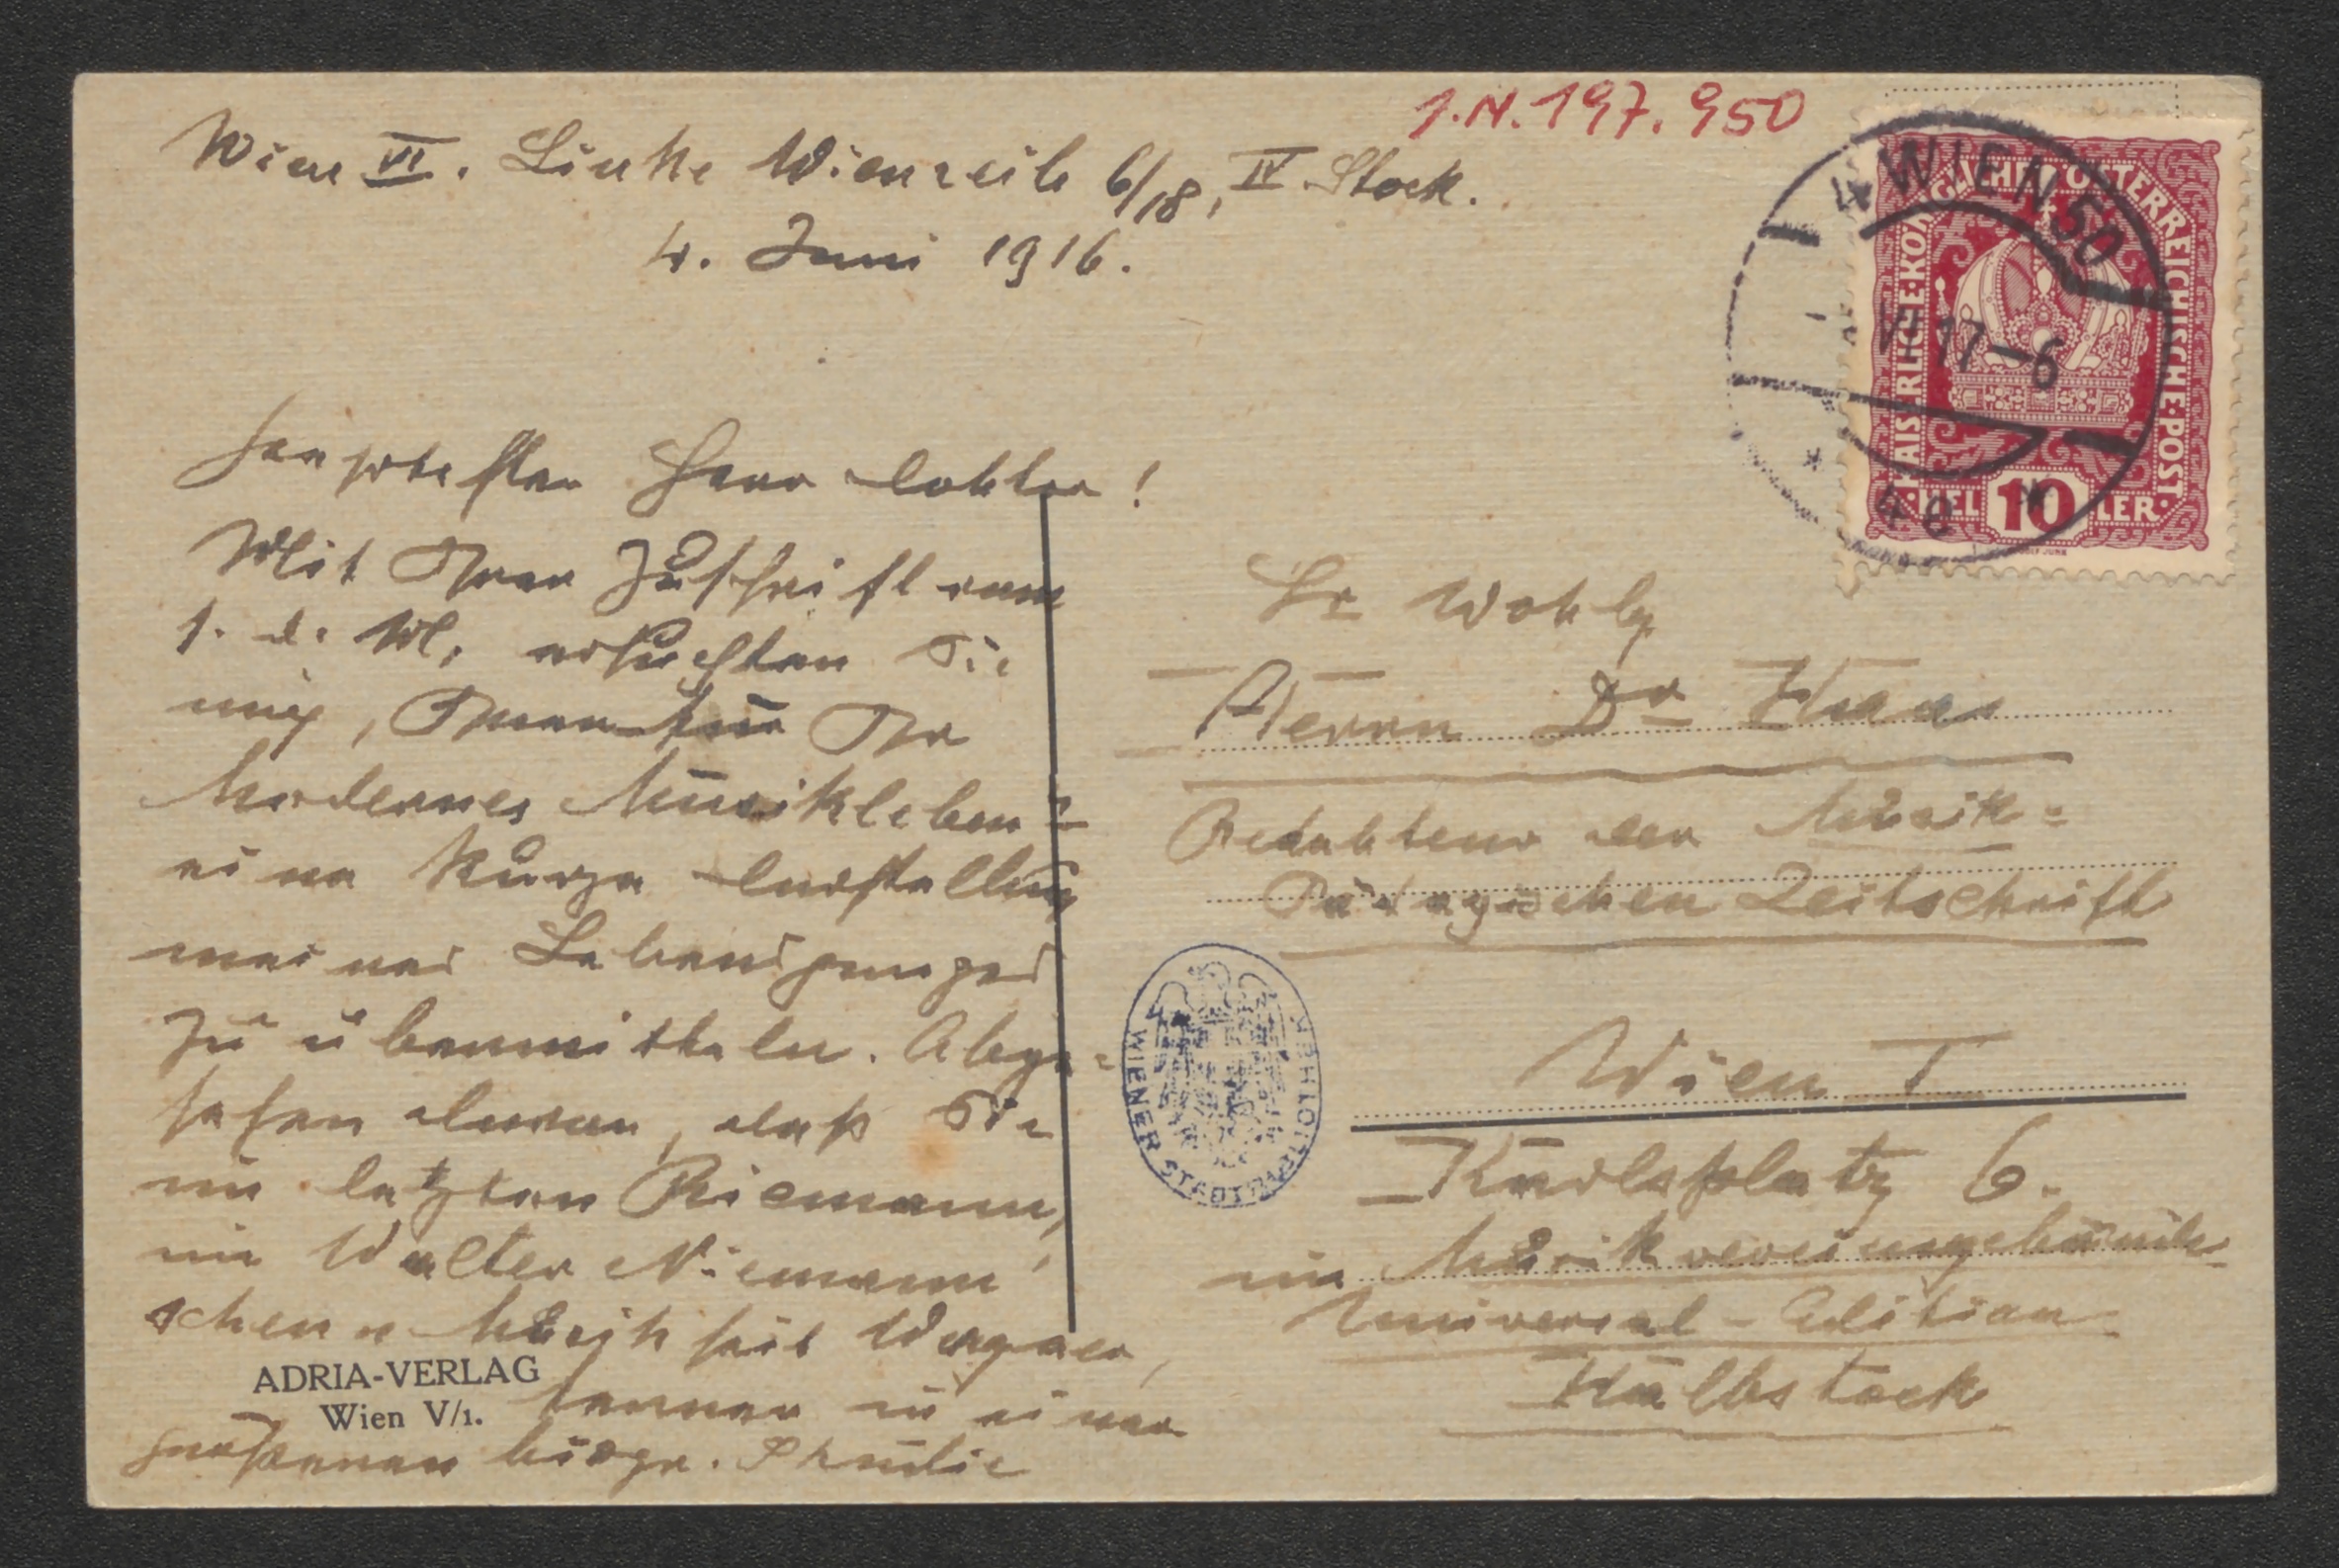 I.N. 197.950
Wien VI. Linke Wienzeile 6/18, IV. Stock.
4. Juni 1916.
Geehrtester Herr Doktor!
Mit Ihrer Zuschrift vom
1. d. M. ersuchten Sie
mich, Ihnen für Ihr
Modernes Musikleben
eine kurze Darstellung
meines Lebensganges
zu übermitteln. Abge=
sehen davon, daß Sie
im letzten Riemann,
in Walter Niemann'
schen Musik seit Wagner,
ferner in einer
grösseren biogr. Studie
ADRIA-VERLAG
Wien V/1.
KAISERLICHE KÖNIGLICHE ÖSTERREICHISCHE POST.
HELLER
10
4 WIEN 50
VI 17-6
* 4e *
Sr Wohlg
Herrn Dr Haas
Redakteur der Musik=
Pädagogischen Zeitschrift
Wien I
Karlsplatz 6.
im Musikvereinsgebäude
Universal-Edition
Halbstock
WIENER STADTBIBLIOTHEK